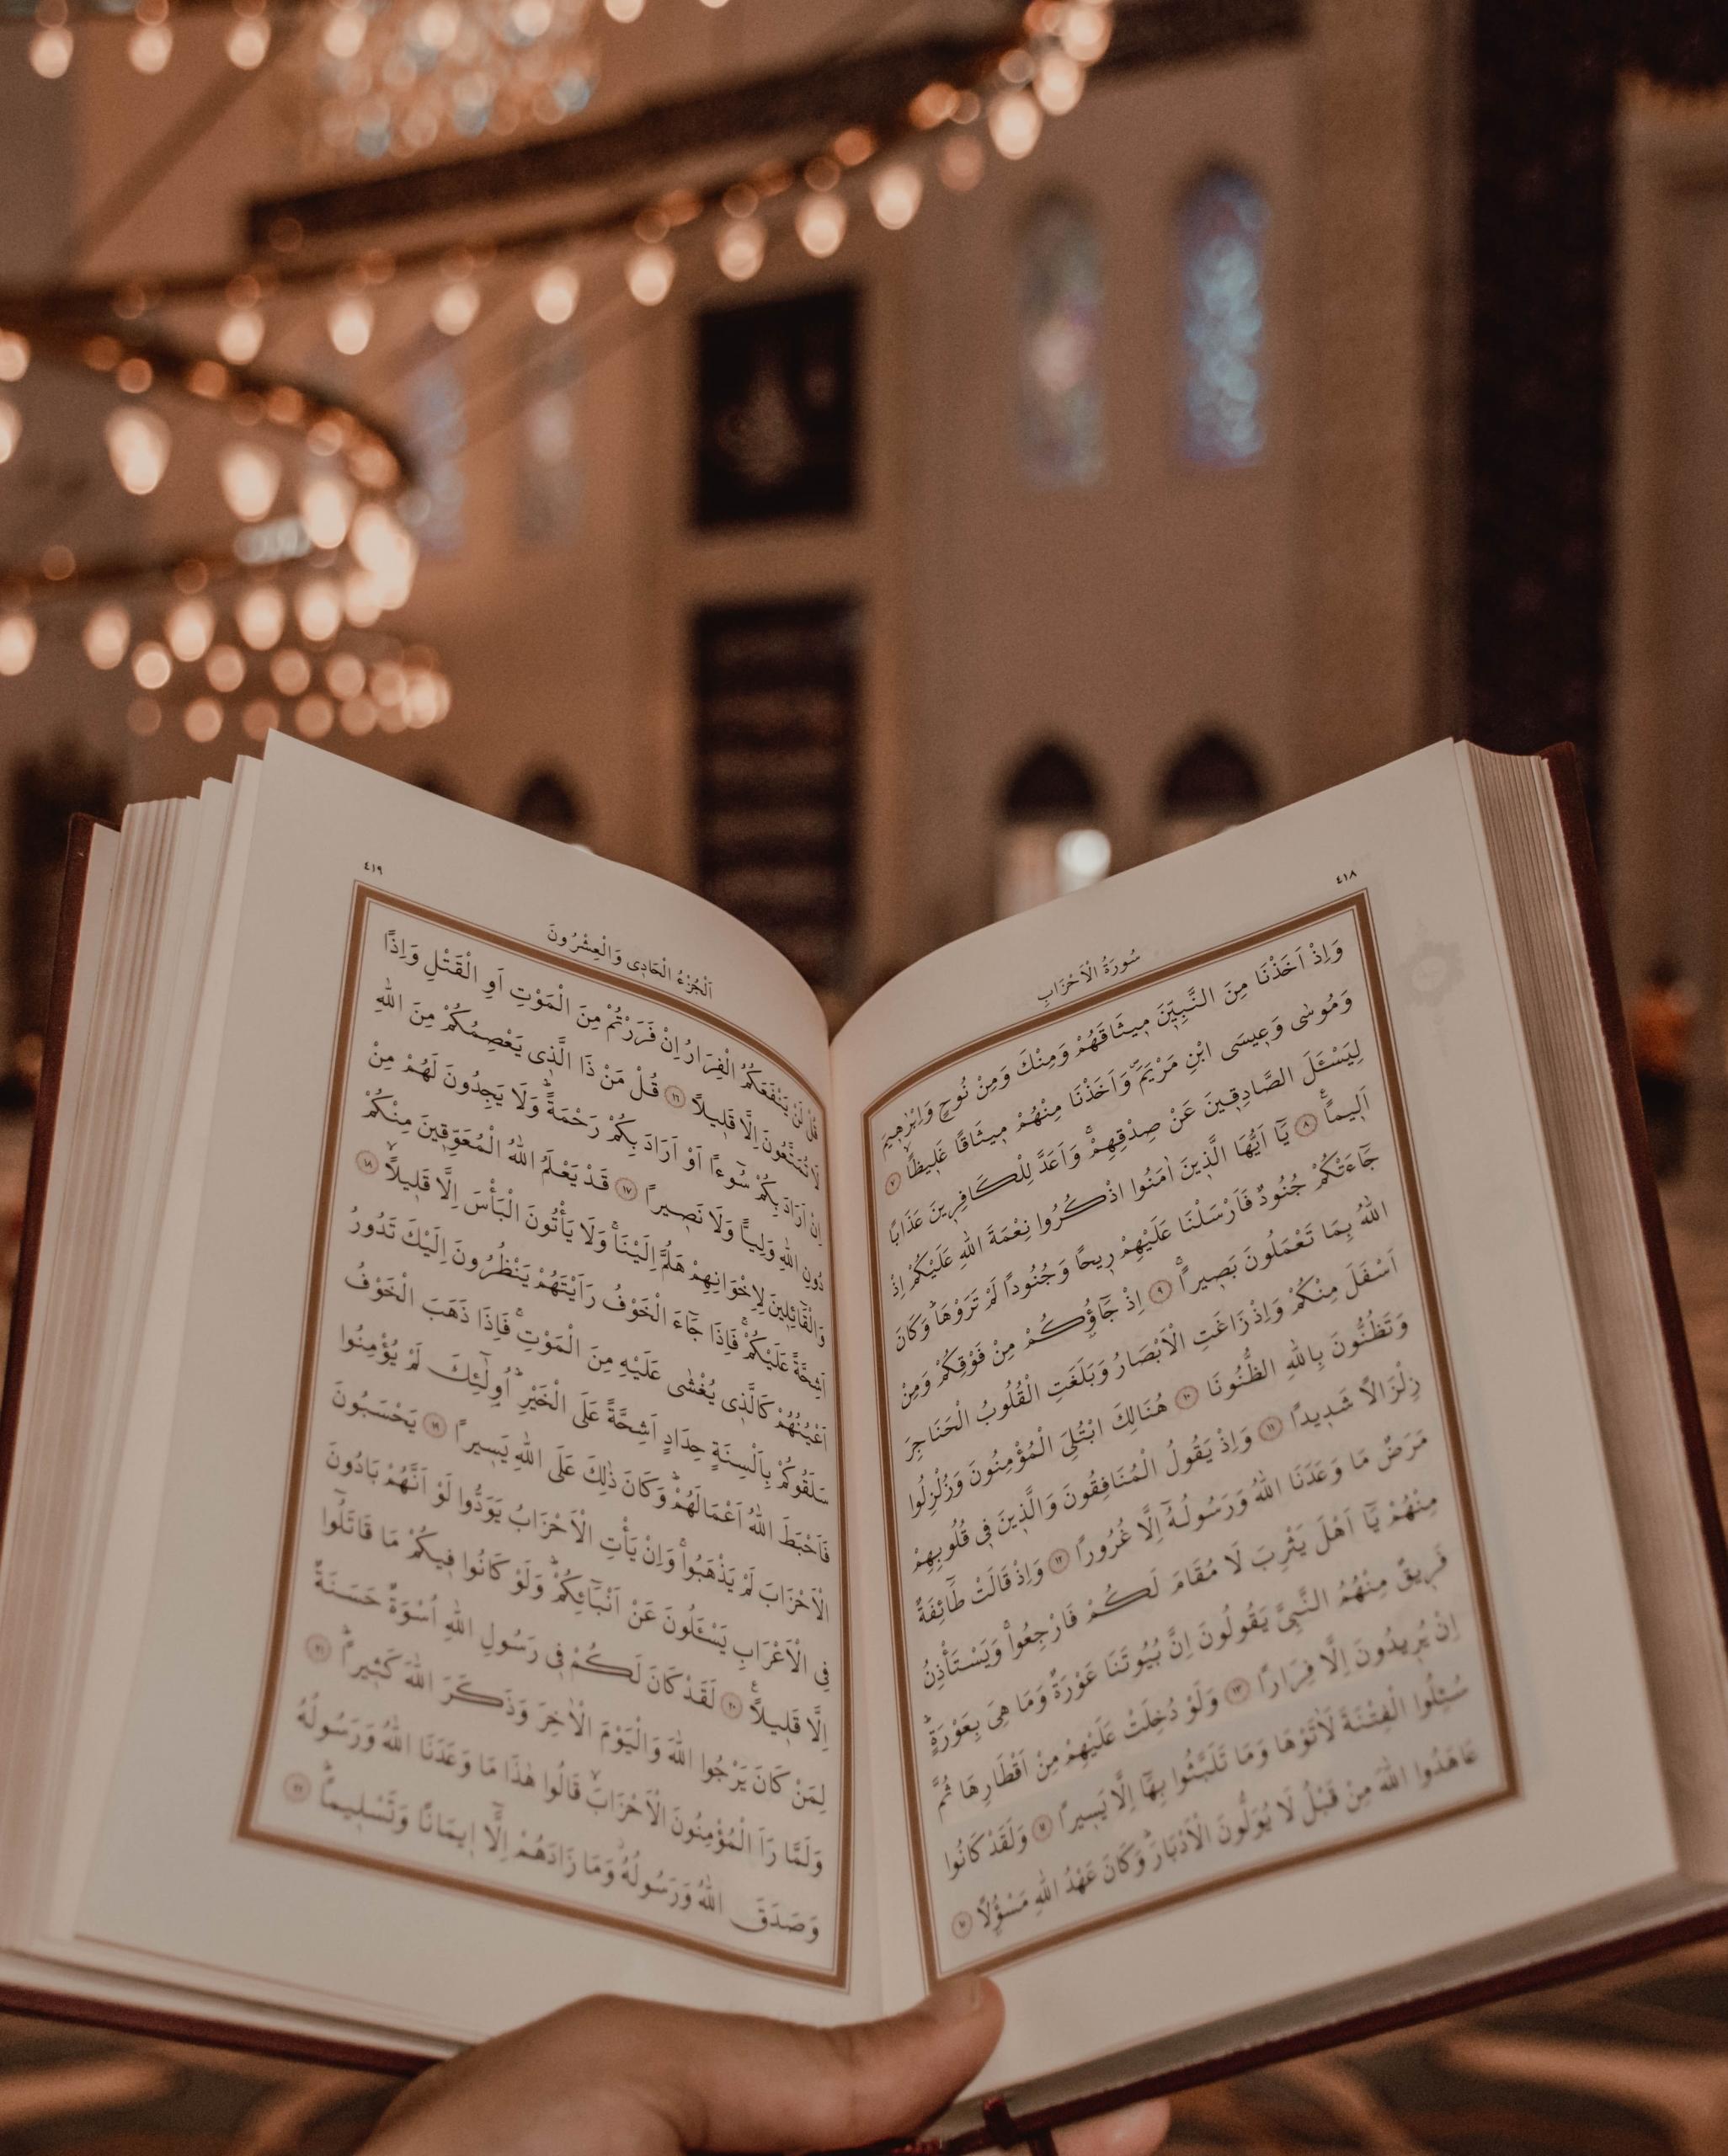 ٤١٨
سُورَةُ الْاَحْزَابِ
وَاِذْ اَخَذْنَا مِنَ النَّبِيّٖنَ مٖيثَاقَهُمْ وَمِنْكَ وَمِنْ نُوحٍ وَاِبْرٰهٖيمَ
وَمُوسٰى وَعٖيسَى ابْنِ مَرْيَمَۖ وَاَخَذْنَا مِنْهُمْ مٖيثَاقًا غَلٖيظًاۙ ﴿٧﴾
لِيَسْـَٔلَ الصَّادِقٖينَ عَنْ صِدْقِهِمْۚ وَاَعَدَّ لِلْكَافِرٖينَ عَذَابًا
اَلٖيمًاࣖ ﴿٨﴾ يَٓا اَيُّهَا الَّذٖينَ اٰمَنُوا اذْكُرُوا نِعْمَةَ اللّٰهِ عَلَيْكُمْ اِذْ
جَٓاءَتْكُمْ جُنُودٌ فَاَرْسَلْنَا عَلَيْهِمْ رٖيحًا وَجُنُودًا لَمْ تَرَوْهَاؕ وَكَانَ
اللّٰهُ بِمَا تَعْمَلُونَ بَصٖيرًاۚ ﴿٩﴾ اِذْ جَٓاؤُ۫كُمْ مِنْ فَوْقِكُمْ وَمِنْ
اَسْفَلَ مِنْكُمْ وَاِذْ زَاغَتِ الْاَبْصَارُ وَبَلَغَتِ الْقُلُوبُ الْحَنَاجِرَ
وَتَظُنُّونَ بِاللّٰهِ الظُّنُونَا ﴿١٠﴾ هُنَالِكَ ابْتُلِيَ الْمُؤْمِنُونَ وَزُلْزِلُوا
زِلْزَالًا شَدٖيدًا ﴿١١﴾ وَاِذْ يَقُولُ الْمُنَافِقُونَ وَالَّذٖينَ فٖي قُلُوبِهِمْ
مَرَضٌ مَا وَعَدَنَا اللّٰهُ وَرَسُولُهُٓ اِلَّا غُرُورًا ﴿١٢﴾ وَاِذْ قَالَتْ طَٓائِفَةٌ
مِنْهُمْ يَٓا اَهْلَ يَثْرِبَ لَا مُقَامَ لَكُمْ فَارْجِعُواۚ وَيَسْتَأْذِنُ
فَرٖيقٌ مِنْهُمُ النَّبِيَّ يَقُولُونَ اِنَّ بُيُوتَنَا عَوْرَةٌ وَمَا هِيَ بِعَوْرَةٍؕ
اِنْ يُرٖيدُونَ اِلَّا فِرَارًا ﴿١٣﴾ وَلَوْ دُخِلَتْ عَلَيْهِمْ مِنْ اَقْطَارِهَا ثُمَّ
سُئِلُوا الْفِتْنَةَ لَاٰتَوْهَا وَمَا تَلَبَّثُوا بِهَٓا اِلَّا يَسٖيرًا ﴿١٤﴾ وَلَقَدْ كَانُوا
عَاهَدُوا اللّٰهَ مِنْ قَبْلُ لَا يُوَلُّونَ الْاَدْبَارَؕ وَكَانَ عَهْدُ اللّٰهِ مَسْؤُ۫لًا ﴿١٥﴾
٤١٩
اَلْجُزْءُ الْحَادٖى وَالْعِشْرُونَ
قُلْ لَنْ يَنْفَعَكُمُ الْفِرَارُ اِنْ فَرَرْتُمْ مِنَ الْمَوْتِ اَوِ الْقَتْلِ وَاِذًا
لَا تُمَتَّعُونَ اِلَّا قَلٖيلًا ﴿١٦﴾ قُلْ مَنْ ذَا الَّذٖي يَعْصِمُكُمْ مِنَ اللّٰهِ
اِنْ اَرَادَ بِكُمْ سُٓوءًا اَوْ اَرَادَ بِكُمْ رَحْمَةًؕ وَلَا يَجِدُونَ لَهُمْ مِنْ
دُونِ اللّٰهِ وَلِيًّا وَلَا نَصٖيرًا ﴿١٧﴾ قَدْ يَعْلَمُ اللّٰهُ الْمُعَوِّقٖينَ مِنْكُمْ
وَالْقَٓائِلٖينَ لِاِخْوَانِهِمْ هَلُمَّ اِلَيْنَاۚ وَلَا يَأْتُونَ الْبَأْسَ اِلَّا قَلٖيلًاۙ ﴿١٨﴾
اَشِحَّةً عَلَيْكُمْۚ فَاِذَا جَٓاءَ الْخَوْفُ رَاَيْتَهُمْ يَنْظُرُونَ اِلَيْكَ تَدُورُ
اَعْيُنُهُمْ كَالَّذٖي يُغْشٰى عَلَيْهِ مِنَ الْمَوْتِۚ فَاِذَا ذَهَبَ الْخَوْفُ
سَلَقُوكُمْ بِاَلْسِنَةٍ حِدَادٍ اَشِحَّةً عَلَى الْخَيْرِؕ اُو۬لٰٓئِكَ لَمْ يُؤْمِنُوا
فَاَحْبَطَ اللّٰهُ اَعْمَالَهُمْؕ وَكَانَ ذٰلِكَ عَلَى اللّٰهِ يَسٖيرًا ﴿١٩﴾ يَحْسَبُونَ
الْاَحْزَابَ لَمْ يَذْهَبُواۚ وَاِنْ يَأْتِ الْاَحْزَابُ يَوَدُّوا لَوْ اَنَّهُمْ بَادُونَ
فِي الْاَعْرَابِ يَسْـَٔلُونَ عَنْ اَنْبَٓائِكُمْؕ وَلَوْ كَانُوا فٖيكُمْ مَا قَاتَلُٓوا
اِلَّا قَلٖيلًاࣖ ﴿٢٠﴾ لَقَدْ كَانَ لَكُمْ فٖي رَسُولِ اللّٰهِ اُسْوَةٌ حَسَنَةٌ
لِمَنْ كَانَ يَرْجُوا اللّٰهَ وَالْيَوْمَ الْاٰخِرَ وَذَكَرَ اللّٰهَ كَثٖيرًاؕ ﴿٢١﴾
وَلَمَّا رَاَ الْمُؤْمِنُونَ الْاَحْزَابَۙ قَالُوا هٰذَا مَا وَعَدَنَا اللّٰهُ وَرَسُولُهُ
وَصَدَقَ اللّٰهُ وَرَسُولُهُؗ وَمَا زَادَهُمْ اِلَّٓا اٖيمَانًا وَتَسْلٖيمًاؕ ﴿٢٢﴾